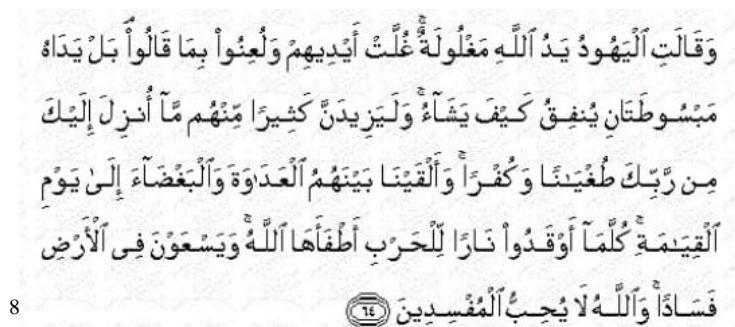 وَقَالَتِ ٱلْيَهُودُ يَدُ ٱللَّهِ مَغْلُولَةٌ ۚ غُلَّتْ أَيْدِيهِمْ وَلُعِنُوا۟ بِمَا قَالُوا۟ ۘ بَلْ يَدَاهُ
مَبْسُوطَتَانِ يُنفِقُ كَيْفَ يَشَآءُ ۚ وَلَيَزِيدَنَّ كَثِيرًا مِّنْهُم مَّآ أُنزِلَ إِلَيْكَ
مِن رَّبِّكَ طُغْيَـٰنًا وَكُفْرًا ۚ وَأَلْقَيْنَا بَيْنَهُمُ ٱلْعَدَٰوَةَ وَٱلْبَغْضَآءَ إِلَىٰ يَوْمِ
ٱلْقِيَـٰمَةِ ۚ كُلَّمَآ أَوْقَدُوا۟ نَارًا لِّلْحَرْبِ أَطْفَأَهَا ٱللَّهُ ۚ وَيَسْعَوْنَ فِى ٱلْأَرْضِ
فَسَادًا ۚ وَٱللَّهُ لَا يُحِبُّ ٱلْمُفْسِدِينَ ٦٤
8